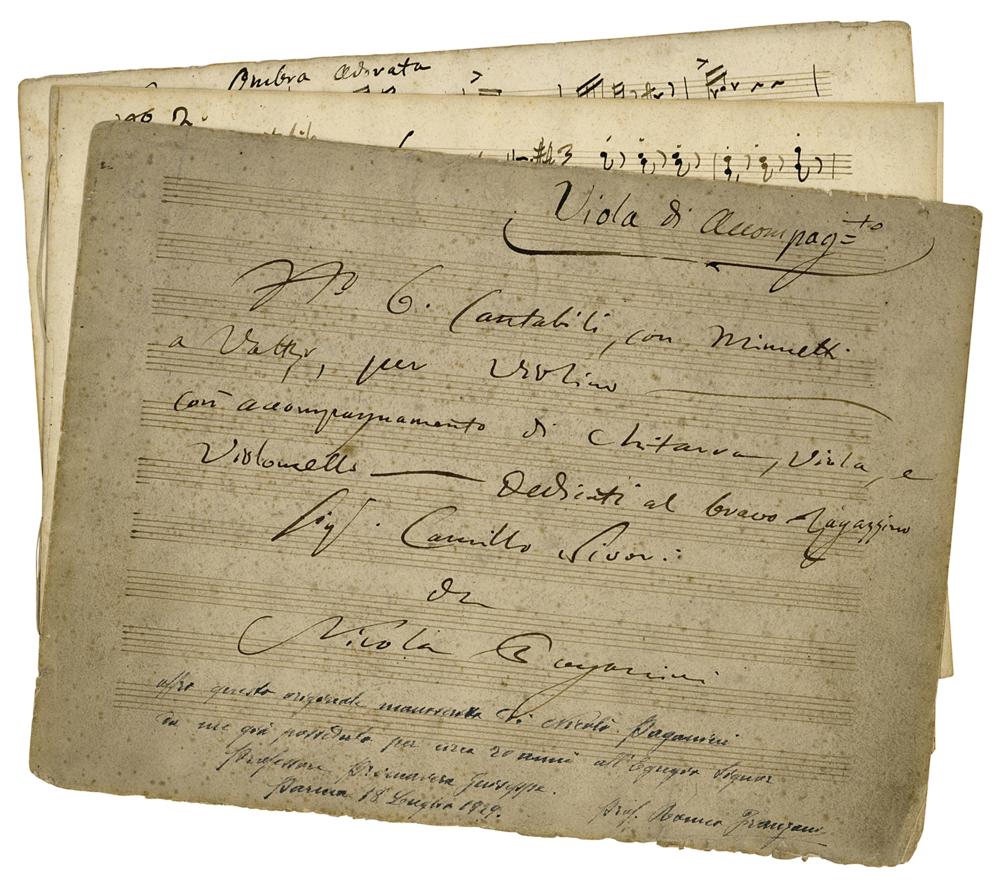 Ombra adorata
No 2
Viola di accompag=to
No 6. Cantabili, con Minuetti
a Valtz, per Violino
con accompagnamento di chitarra, Viola, e
Violoncello — Dedicati al bravo Ragazzino
Sigr. Camillo Sivori
da
Nicolò Paganini
offro questo originale manoscritto di Nicolò Paganini
da me già posseduto per circa 20 anni all'Egregio Signor
Professore Primavera Giuseppe.
Parma 18 Luglio 1929.
Prof. Romeo Franzoni